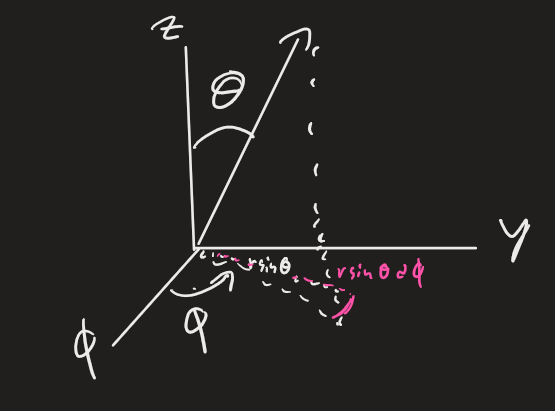 z
θ
y
rsinθ
rsinθdϕ
φ
ϕ